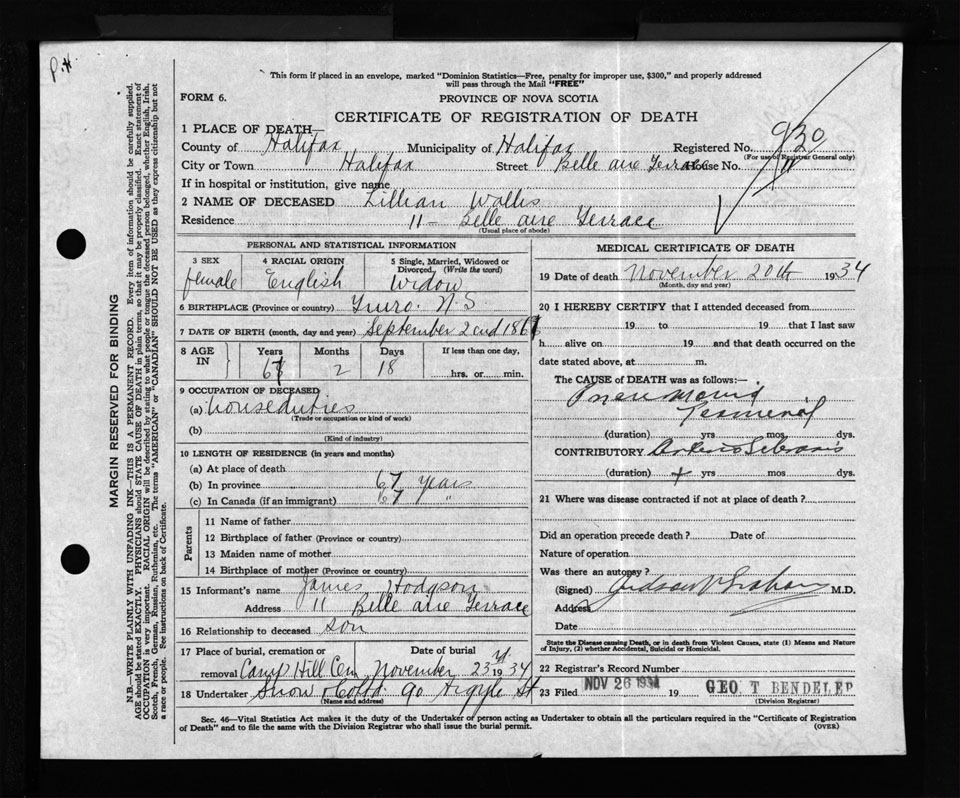 P.H.
This form if placed in an envelope, marked "Dominion Statistics—Free, penalty for improper use, $300," and properly addressed
will pass through the Mail "FREE"
FORM 6.
PROVINCE OF NOVA SCOTIA
CERTIFICATE OF REGISTRATION OF DEATH
1 PLACE OF DEATH—
County of Halifax Municipality of Halifax Registered No. 930
(For use of Registrar General only)
City or Town Halifax Street Belle aire Terrace House No. 11
If in hospital or institution, give name
2 NAME OF DECEASED Lillian Wallis
Residence 11 - Belle aire Terrace
(Usual place of abode)
PERSONAL AND STATISTICAL INFORMATION
3 SEX 4 RACIAL ORIGIN 5 Single, Married, Widowed or
Divorced, (Write the word)
female English Widow
6 BIRTHPLACE (Province or country) Truro. N S
7 DATE OF BIRTH (month, day and year) September 2nd 1867
8 AGE IN Years Months Days If less than one day,
67 2 18 hrs. or min.
9 OCCUPATION OF DECEASED
(a) houseduties
(Trade or occupation or kind of work)
(b)
(Kind of industry)
10 LENGTH OF RESIDENCE (in years and months)
(a) At place of death
(b) In province 67 years
(c) In Canada (if an immigrant) 67 "
Parents
11 Name of father
12 Birthplace of father (Province or country)
13 Maiden name of mother
14 Birthplace of mother (Province or country)
15 Informant's name James Hodgson
Address 11 Belle aire Terrace
16 Relationship to deceased son
17 Place of burial, cremation or Date of burial
removal Camp Hill Cem November 23 1934
18 Undertaker Snow & Co Ltd 90 Argyle St
(Name and address)
MEDICAL CERTIFICATE OF DEATH
19 Date of death November 20th 1934
(Month, day and year)
20 I HEREBY CERTIFY that I attended deceased from
19 to 19 that I last saw
h alive on 19 and that death occurred on the
date stated above, at m.
The CAUSE of DEATH was as follows:—
Pneumonia
Terminal
(duration) yrs mos dys.
CONTRIBUTORY Arterio Sclerosis
(duration) + yrs mos dys.
21 Where was disease contracted if not at place of death?
Did an operation precede death? Date of
Nature of operation
Was there an autopsy?
(Signed) Judson V Graham M.D.
Address
Date
State the Disease causing Death, or in death from Violent Causes, state (1) Means and Nature
of Injury, (2) whether Accidental, Suicidal or Homicidal.
22 Registrar's Record Number
23 Filed NOV 26 1934 19 GEO. T BENDELER
(Division Registrar)
Sec. 46—Vital Statistics Act makes it the duty of the Undertaker or person acting as Undertaker to obtain all the particulars required in the "Certificate of Registration
of Death" and to file the same with the Division Registrar who shall issue the burial permit. (OVER)
MARGIN RESERVED FOR BINDING
N.B.—WRITE PLAINLY WITH UNFADING INK—THIS IS A PERMANENT RECORD. Every item of information should be carefully supplied.
AGE should be stated EXACTLY. PHYSICIANS should STATE CAUSE OF DEATH in plain terms, so that it may be properly classified. Exact statement of
OCCUPATION is very important. RACIAL ORIGIN will be described by stating to what people or tongue the deceased person belonged, whether English, Irish,
Scotch, French, German, Russian, Ruthenian, etc. The terms "AMERICAN" or "CANADIAN" SHOULD NOT BE USED as they express citizenship but not
a race or people. See instructions on back of Certificate.